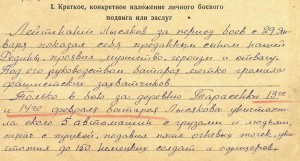 I. Краткое, конкретное изложение личного боевого
подвига или заслуг
Лейтенант Лысяков за период боев с 29 Ян-
варя показал себя преданным сыном нашей
Родины, проявил мужество, героизм и отвагу.
Под его руководством батарея метко громила
фашистских захватчиков.
Только в бою за деревню Тарасовки 13.00
и 14.00 февраля батарея Лысякова уничтожи-
ла около 5 автомашин с грузами и людьми,
подавил огневых точек, уни-
чтожил до 150 немецких солдат и офицеров